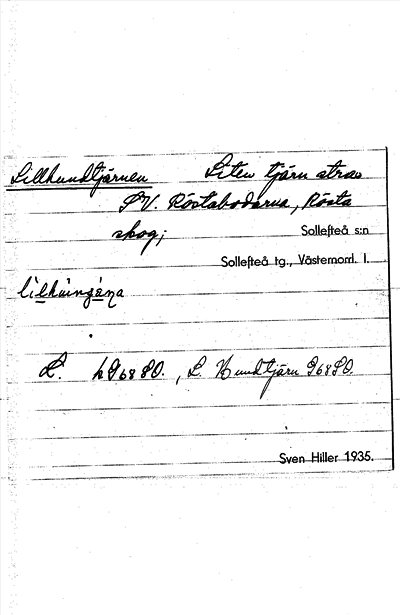 Lillhundtjärnen Liten tjärn strax
SV. Röstabodarna, Rösta
skog;
Sollefteå s:n
Sollefteå tg., Västernorrl. l.
L. h G68 SO., L. Hundtjärn G68 SO.
Sven Hiller 1935.